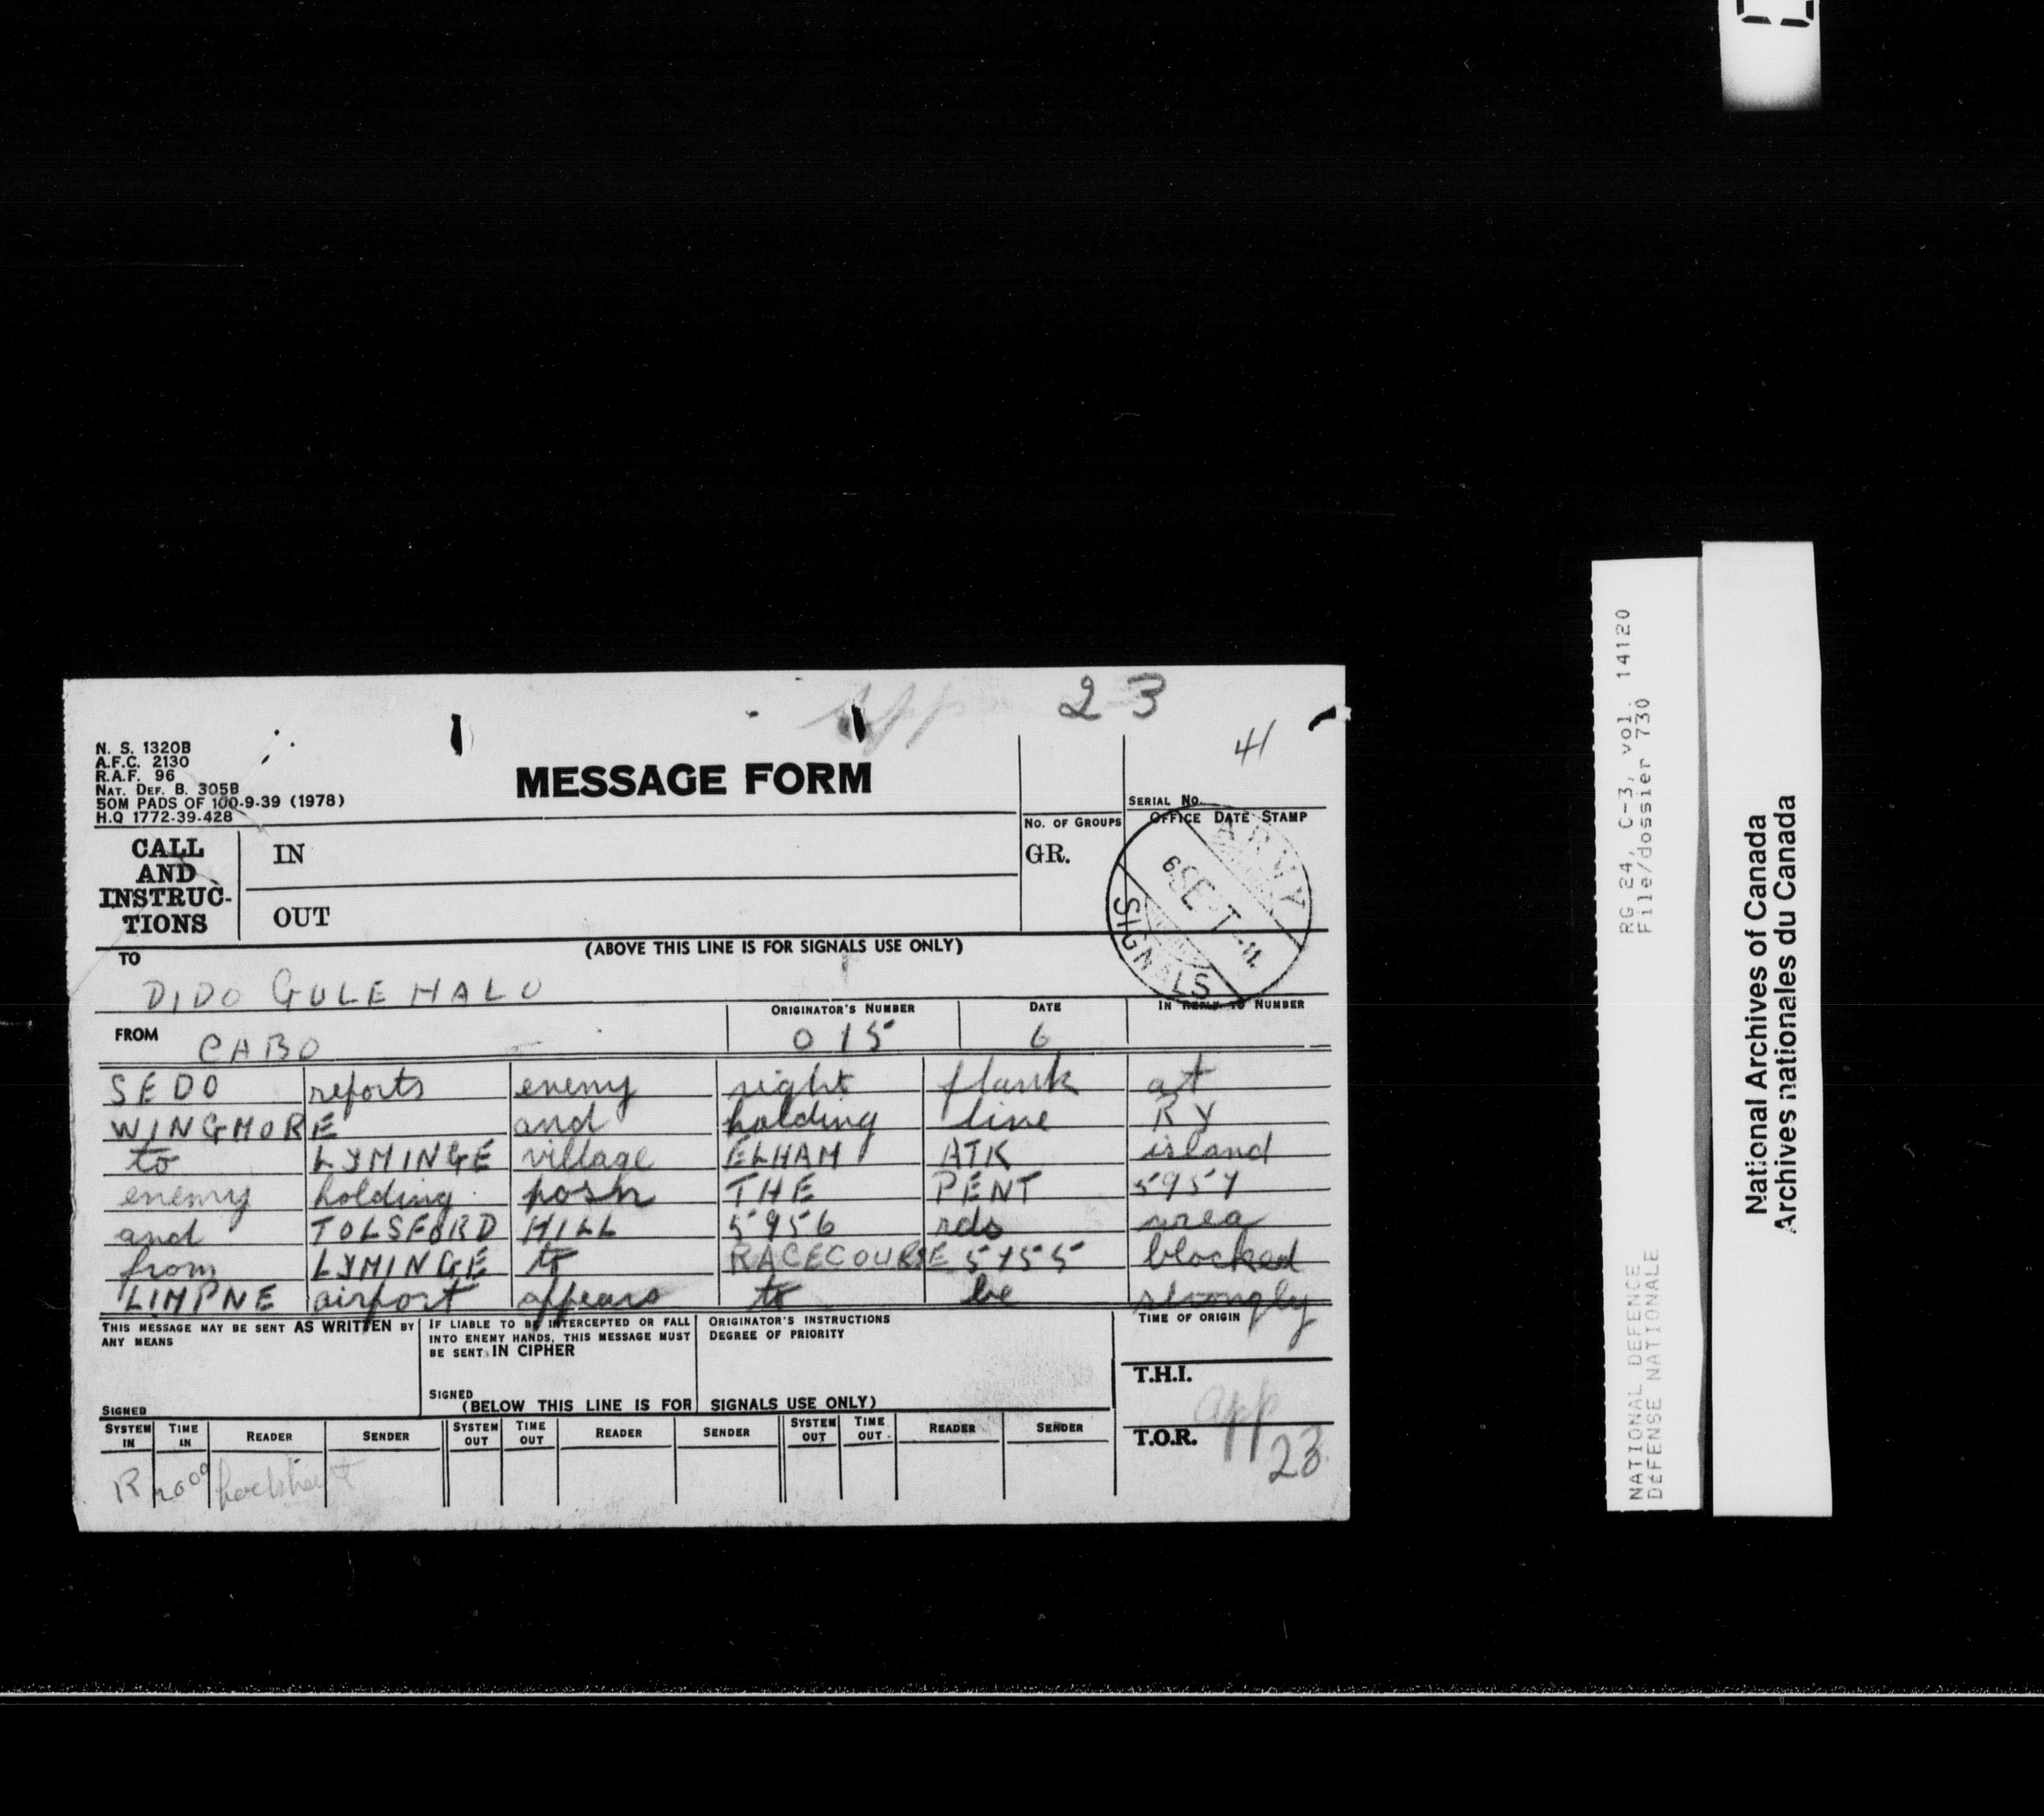 23
41
N. S. 1320B
A.F.C. 2130
R.A.F. 96
NAT. DEF. B. 305B
50M PADS OF 100-9-39 (1978)
H.Q 1772-39-428
MESSAGE FORM
SERIAL NO.
NO. OF GROUPS
OFFICE DATE STAMP
CALL AND INSTRUC-TIONS
IN
GR.
OUT
ARMY
6 SE T
SIGNALS
(ABOVE THIS LINE IS FOR SIGNALS USE ONLY)
TO
DIDO GULE HALO
ORIGINATOR'S NUMBER
DATE
IN REPLY TO NUMBER
FROM
CABO
015
6
SEDO reports enemy right flank at
WINGMORE and holding line RY
to LYMINGE village ELHAM ATK island
enemy holding posn THE PENT 5957
and TOLSFORD HILL 5956 rds area
from LYMINGE to RACECOURSE 5755 blocked
LIMPNE airport appears to be strongly
THIS MESSAGE MAY BE SENT AS WRITTEN BY ANY MEANS
IF LIABLE TO BE INTERCEPTED OR FALL INTO ENEMY HANDS, THIS MESSAGE MUST BE SENT IN CIPHER
ORIGINATOR'S INSTRUCTIONS
DEGREE OF PRIORITY
TIME OF ORIGIN
T.H.I.
SIGNED
SIGNED
(BELOW THIS LINE IS FOR SIGNALS USE ONLY)
SYSTEM IN TIME IN READER SENDER SYSTEM OUT TIME OUT READER SENDER SYSTEM OUT TIME OUT READER SENDER
T.O.R.
app
23
R
RG 24, C-3, vol. 14120
File/dossier 730
NATIONAL DEFENCE
DÉFENSE NATIONALE
National Archives of Canada
Archives nationales du Canada